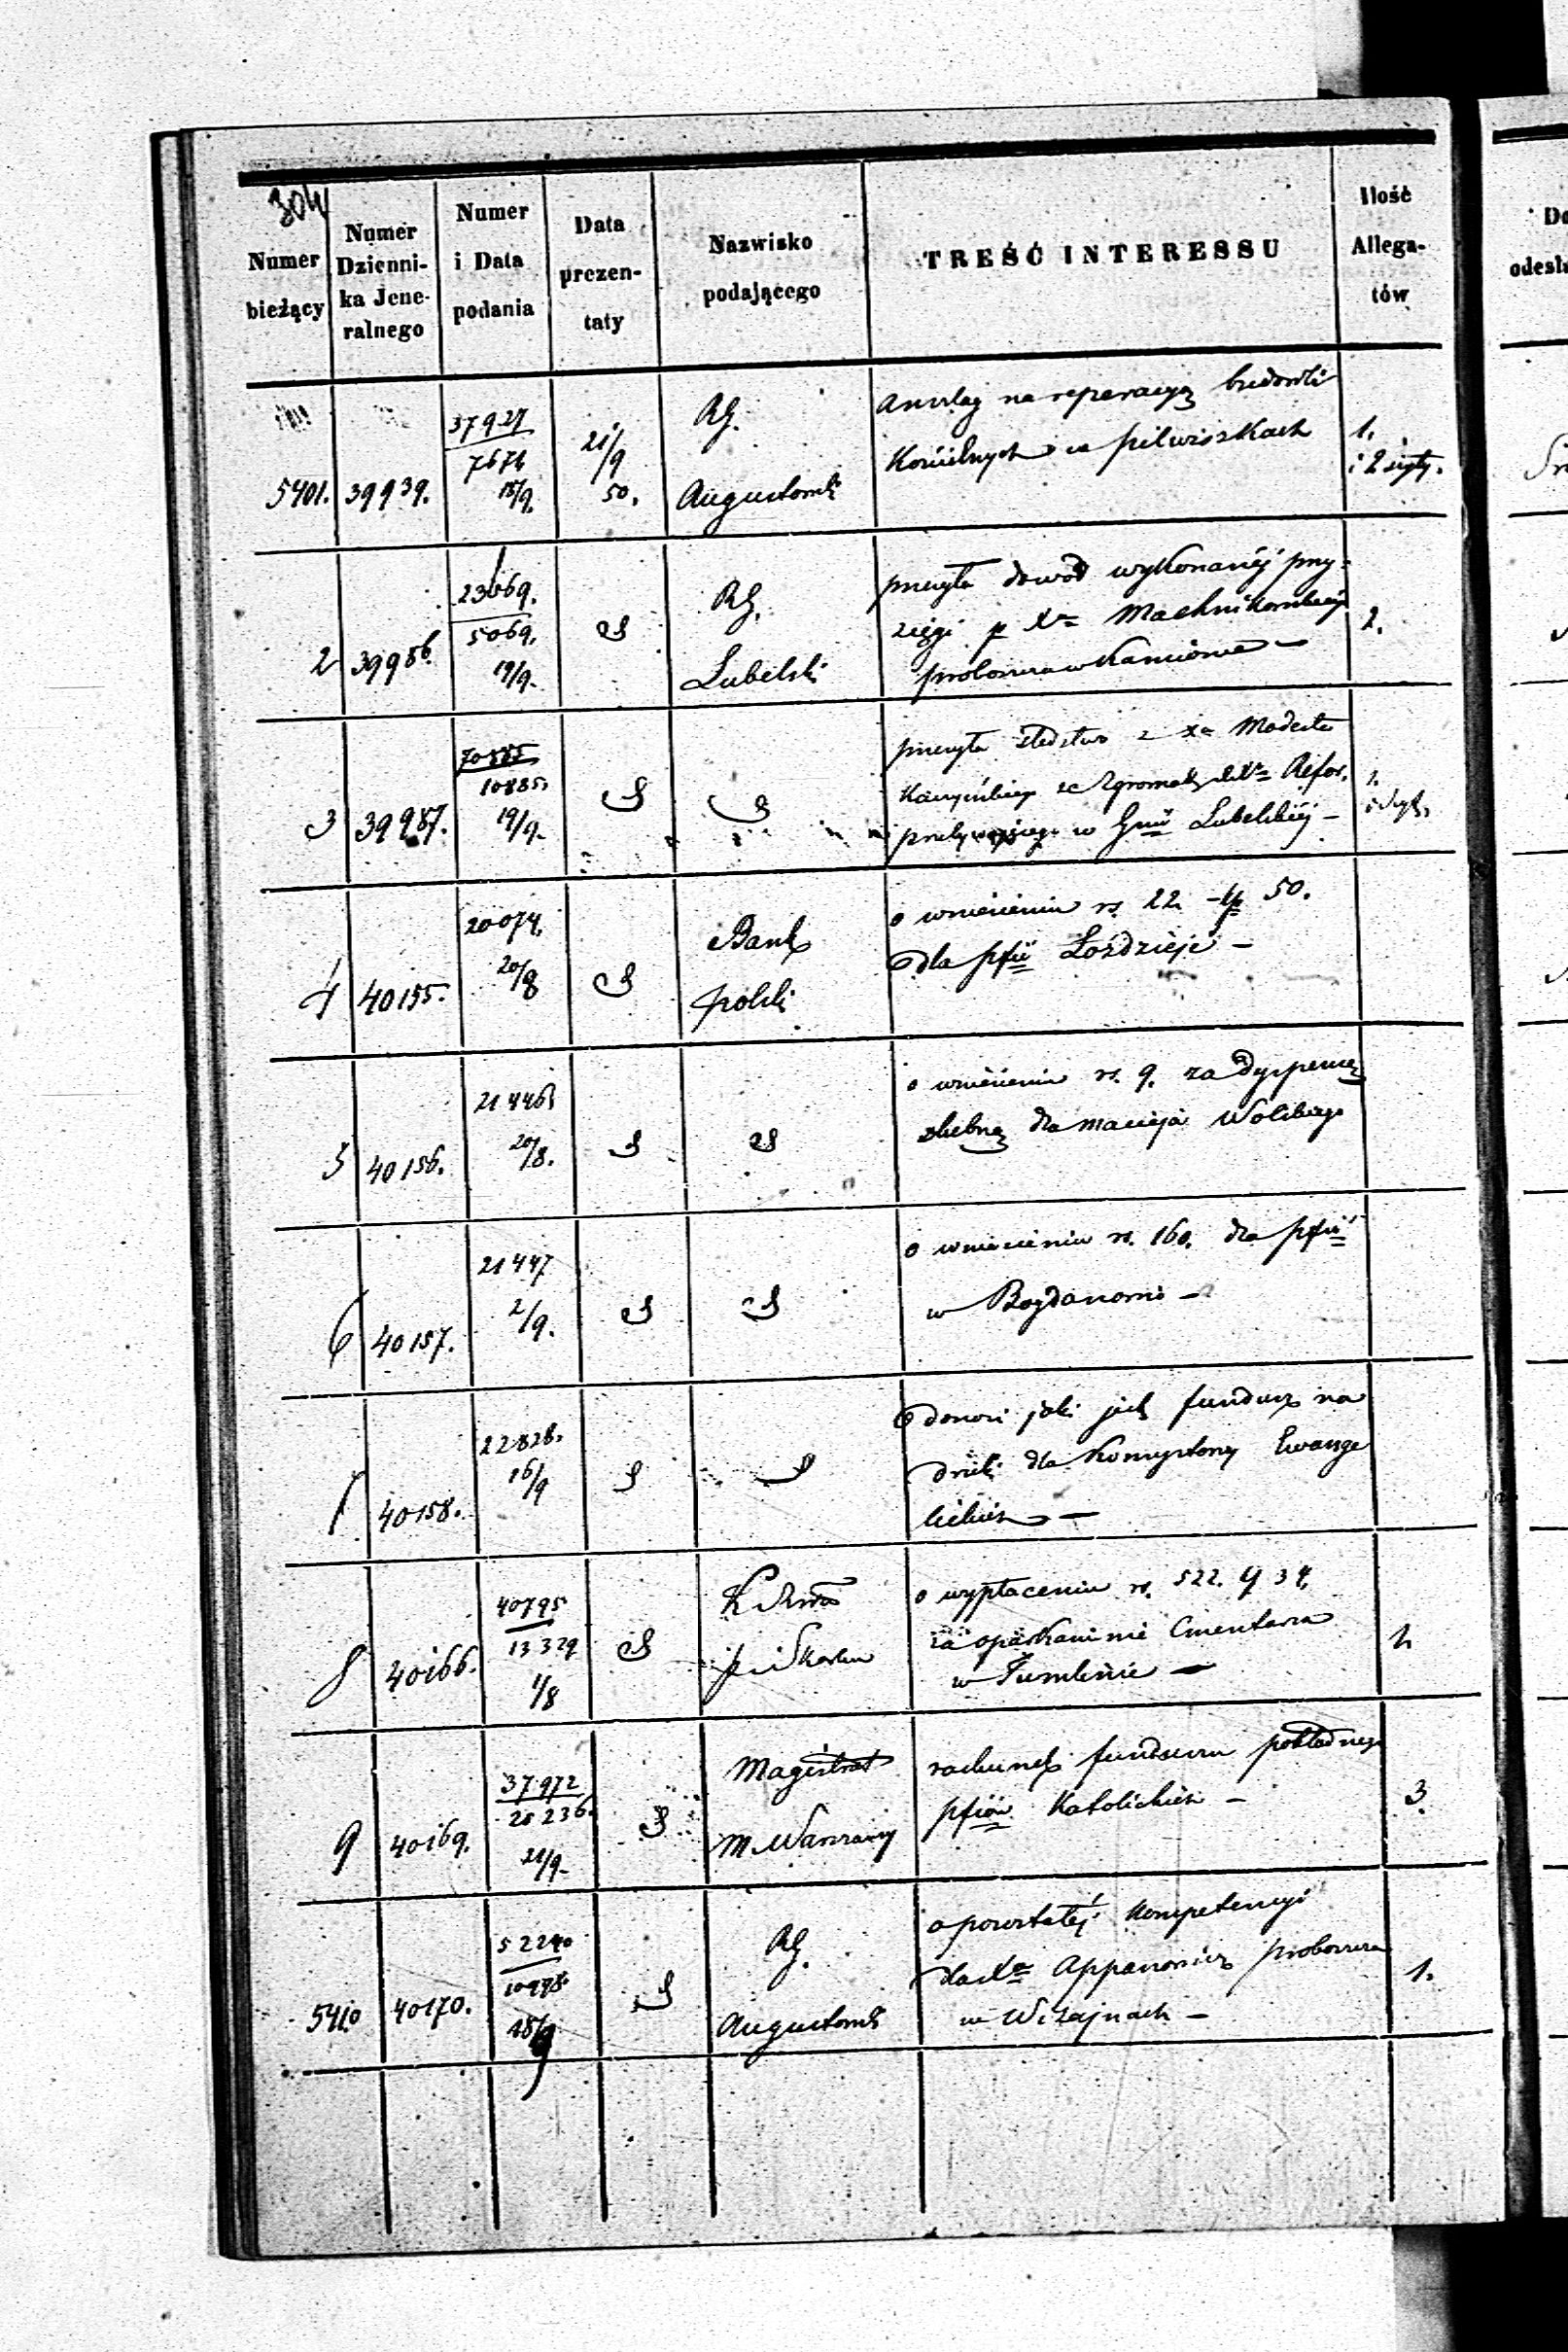 304
Numer bieżący
Numer Dziennika Jeneralnego
Numer i Data podania
Data prezentaty
Nazwisko podającego
TREŚĆ INTERESSU
Ilość Allegatów
5401. 39939. 37927 7674 18/9. 21/9 50. RG. Augustowski
Anszlag na reperacyą budowli
Kościelnych w Pilwiszkach
1. i 2 szyty.
2 39986. 23669. 5069. 19/9. RG. Lubelski
przesyła dowód wykonanéj przy-
sięgi p Xa Machnikowskiego
proboszcza w Kamionce —
2.
3 39987. 10885. 19/9.
przesyła śledztwo z Xa Modesta
Kaczyńskiego ze Zgromadz. Refor.
w Gnii Lubelskiéj —
1.
4 40155. 20074. 20/8 Bank Polski
o wniesieniu rs. 22 50.
dla pfii Łoździeje —
5 40156. 21446 20/8.
o wniesieniu rs. 9. za dyspensę
ślubną dla Macieja Wolskiego
6 40157. 21447 2/9.
o wniesieniu rs. 160. dla pfii
w Bogdanowie —
7 40158. 22828. 16/9
donosi jaki jest fundusz na
druki dla Konsystorzy Ewange
lickich —
8 40166. 40795 13329 1/8 K Rzdwa P i Skarbu
o wypłaceniu rs. 522. 34.
za oparkanienie Cmentarza
w Tumlinie —
2
9 40169. 37972 28236. 21/9. Magistrat M. Warszawy
rachunek funduszu pokładnego
pfiów Katolickich —
3.
5410 40170. 52240 10978. 18/9 RG. Augustowski
o powstałéj Kompetencyi
dla Xa Appanowicz proboszcza
w Wiżajnach —
1.